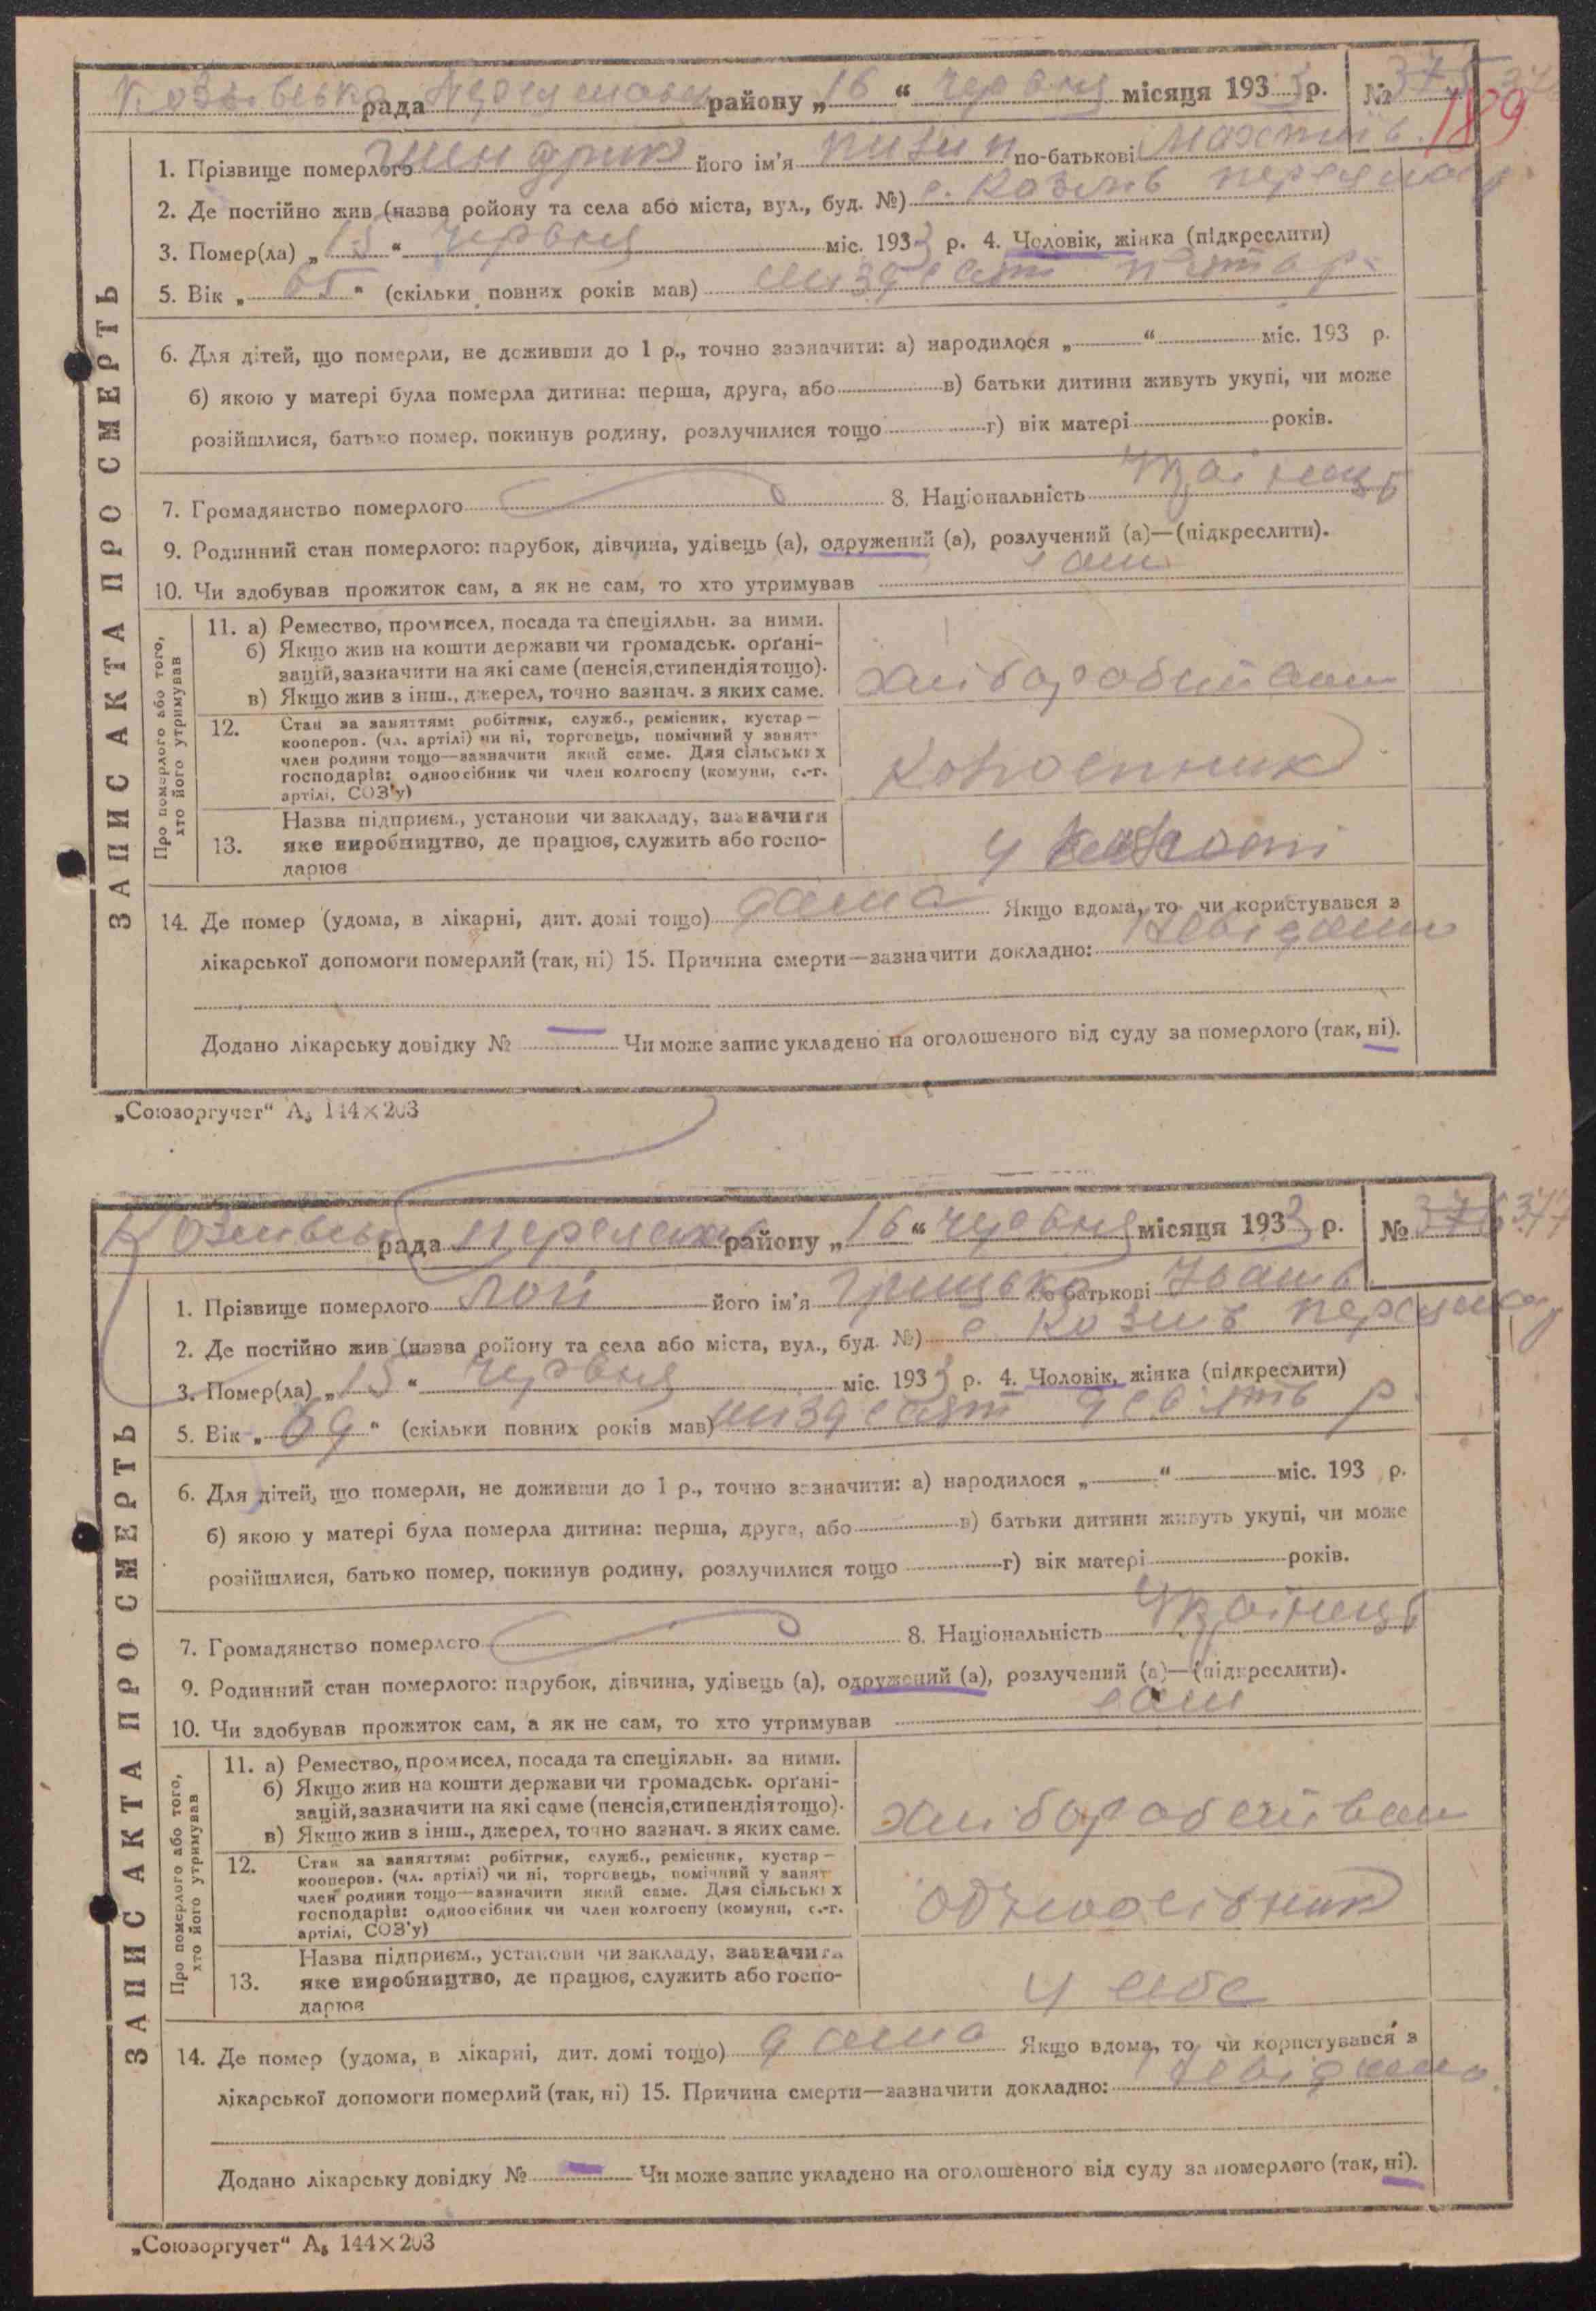 рада району „16“ червня місяця 1933 р. № 375
189
1. Прізвище померлого його ім'я по-батькові
2. Де постійно жив (назва ройону та села або міста, вул., буд. №) с. Козлів
3. Помер(ла) „15“ червня міс. 1933 р. 4. Чоловік, жінка (підкреслити)
5. Вік „65“ (скільки повних років мав)
6. Для дітей, що померли, не доживши до 1 р., точно зазначити: а) народилося „ “ міс. 193 р.
б) якою у матері була померла дитина: перша, друга, або в) батьки дитини живуть укупі, чи може
розійшлися, батько помер, покинув родину, розлучилися тощо г) вік матері років.
7. Громадянство померлого 8. Національність Українець
9. Родинний стан померлого: парубок, дівчина, удівець (а), одружений (а), розлучений (а)—(підкреслити).
10. Чи здобував прожиток сам, а як не сам, то хто утримував сам
ЗАПИС АКТА ПРО СМЕРТЬ
Про померлого або того, хто його утримував
11. а) Ремество, промисел, посада та спеціяльн. за ними.
б) Якщо жив на кошти держави чи громадськ. орґані-
зацій, зазначити на які саме (пенсія, стипендія тощо).
в) Якщо жив з інш., джерел, точно зазнач. з яких саме.
12. Стан за заняттям: робітник, служб., ремісник, кустар—
кооперов. (чл. артілі) чи ні, торговець, помічний у занят-
член родини тощо—зазначити який саме. Для сільських
господарів: одноосібник чи член колгоспу (комуни, с.-г.
артілі, СОЗ'у)
Назва підприєм., установи чи закладу, зазначити
13. яке виробництво, де працює, служить або госпо-
дарює
14. Де помер (удома, в лікарні, дит. домі тощо) дома Якщо вдома, то чи користувався з
лікарської допомоги померлий (так, ні) 15. Причина смерти—зазначити докладно: Невідомо
Додано лікарську довідку № — Чи може запис укладено на оголошеного від суду за померлого (так, ні).
„Союзоргучет“ А₅ 144×203
рада району „16“ червня місяця 1933 р. № 377
1. Прізвище померлого Лой його ім'я Грицько по-батькові Іванів
2. Де постійно жив (назва ройону та села або міста, вул., буд. №) с. Козлів
3. Помер(ла) „15“ червня міс. 1933 р. 4. Чоловік, жінка (підкреслити)
5. Вік „69“ (скільки повних років мав) шіздесят девять р
6. Для дітей, що померли, не доживши до 1 р., точно зазначити: а) народилося „ “ міс. 193 р.
б) якою у матері була померла дитина: перша, друга, або в) батьки дитини живуть укупі, чи може
розійшлися, батько помер, покинув родину, розлучилися тощо г) вік матері років.
7. Громадянство померлого 8. Національність Українець
9. Родинний стан померлого: парубок, дівчина, удівець (а), одружений (а), розлучений (а)—(підкреслити).
10. Чи здобував прожиток сам, а як не сам, то хто утримував сам
ЗАПИС АКТА ПРО СМЕРТЬ
Про померлого або того, хто його утримував
11. а) Ремество, промисел, посада та спеціяльн. за ними.
б) Якщо жив на кошти держави чи громадськ. орґані-
зацій, зазначити на які саме (пенсія, стипендія тощо).
в) Якщо жив з інш., джерел, точно зазнач. з яких саме.
12. Стан за заняттям: робітник, служб., ремісник, кустар—
кооперов. (чл. артілі) чи ні, торговець, помічний у занят
член родини тощо—зазначити який саме. Для сільських
господарів: одноосібник чи член колгоспу (комуни, с.-г.
артілі, СОЗ'у) одноосібник
Назва підприєм., установи чи закладу, зазначити
13. яке виробництво, де працює, служить або госпо- у себе
дарює
14. Де помер (удома, в лікарні, дит. домі тощо) дома Якщо вдома, то чи користувався з
лікарської допомоги померлий (так, ні) 15. Причина смерти—зазначити докладно: Невідомо
Додано лікарську довідку № — Чи може запис укладено на оголошеного від суду за померлого (так, ні).
„Союзоргучет“ А₅ 144×203